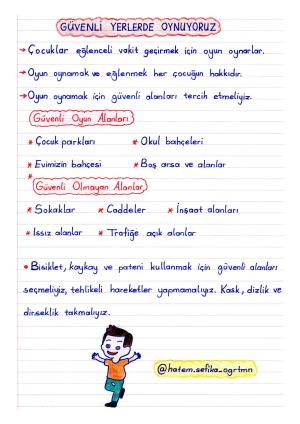 GÜVENLİ YERLERDE OYNUYORUZ
→Çocuklar eğlenceli vakit geçirmek için oyun oynarlar.
→Oyun oynamak ve eğlenmek her çocuğun hakkıdır.
→Oyun oynamak için güvenli alanları tercih etmeliyiz.
Güvenli Oyun Alanları
* Çocuk parkları * Okul bahçeleri
* Evimizin bahçesi * Boş arsa ve alanlar
*
Güvenli Olmayan Alanlar
* Sokaklar * Caddeler * İnşaat alanları
* Issız alanlar * Trafiğe açık alanlar
• Bisiklet, kaykay ve pateni kullanmak için güvenli alanları
seçmeliyiz, tehlikeli hareketler yapmamalıyız. Kask, dizlik ve
dirseklik takmalıyız.
@hatem.sefika_ogrtmn